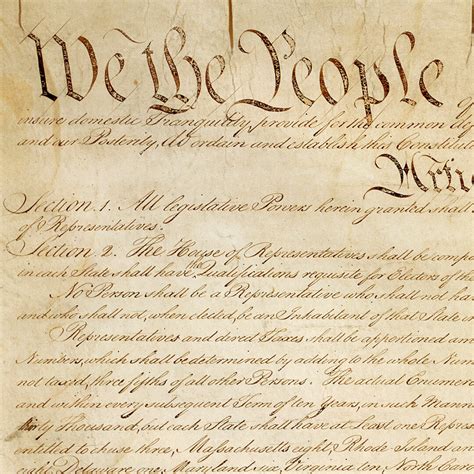 We the People
insure domestic Tranquility, provide for the common de
and our Posterity, do ordain and establish this Constitut
Artic
Section. 1. All legislative Powers herein granted shall
of Representatives.
Section. 2. The House of Representatives shall be compo
in each State shall have the Qualifications requisite for Electors of th
No Person shall be a Representative who shall not ha
and who shall not, when elected, be an Inhabitant of that State in
Representatives and direct Taxes shall be apportioned am
Numbers, which shall be determined by adding to the whole Num
not taxed, three fifths of all other Persons. The actual Enumer
and within every subsequent Term of ten Years, in such Mann
thirty Thousand, but each State shall have at Least one Represent
entitled to chuse three, Massachusetts eight, Rhode Island an
eight, Delaware one, Maryland six, Virginia ten, North C